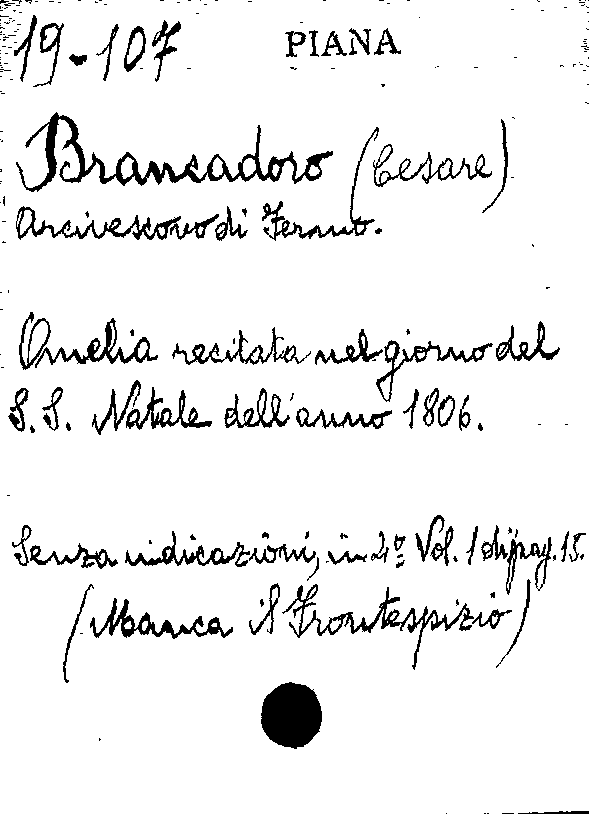 19-107 PIANA
Brancadoro (Cesare)
Arcivescovo di Fermo.
Omelia recitata nel giorno del
S.S. Natale dell'anno 1806.
Senza indicazioni, in 4º Vol. 1 di pag. 15.
(Manca il Frontespizio)